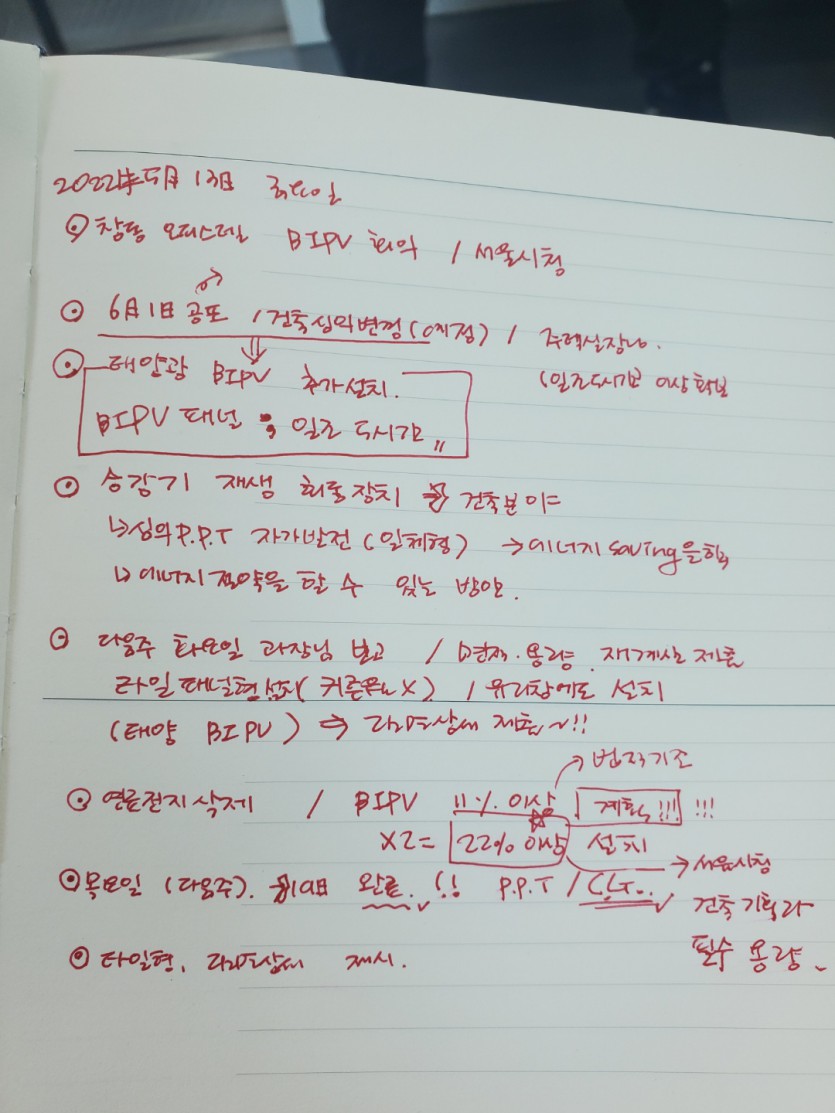 2022年 5月 13日 금요일
⊙ 창동 오피스텔 BIPV 회의 / 서울시청
⊙ 6月 1日 공포 / 건축심의변경(예정) / 주택실장님.
⊙ 태양광 BIPV 추가설치. (일조 5시간 이상 확보
BIPV 패널 ; 일조 5시간 〃
⊙ 승강기 재생 회동장치 건축분야
↳ 심의 P.P.T 자가발전 (일체형) → 에너지 saving을
↳ 에너지 절약을 할 수 있는 방안.
⊙ 다음주 화요일 과장님 보고 / 면적. 용량. 재계산 제출
타일 패널형 설치( X) / 유리창에도 설치
(태양 BIPV) ⇒ 디테일상세 제출~!!
→ 법적기준
⊙ 연료전지 삭제 / BIPV 11% 이상 계획!!! !!!
X2 = 22% 이상 설치
⊙ 목요일 (다음주). 19日 완료. !! P.P.T / → 서울시청
건축기획과
필수 용량.
⊙ 타일형. 제시.